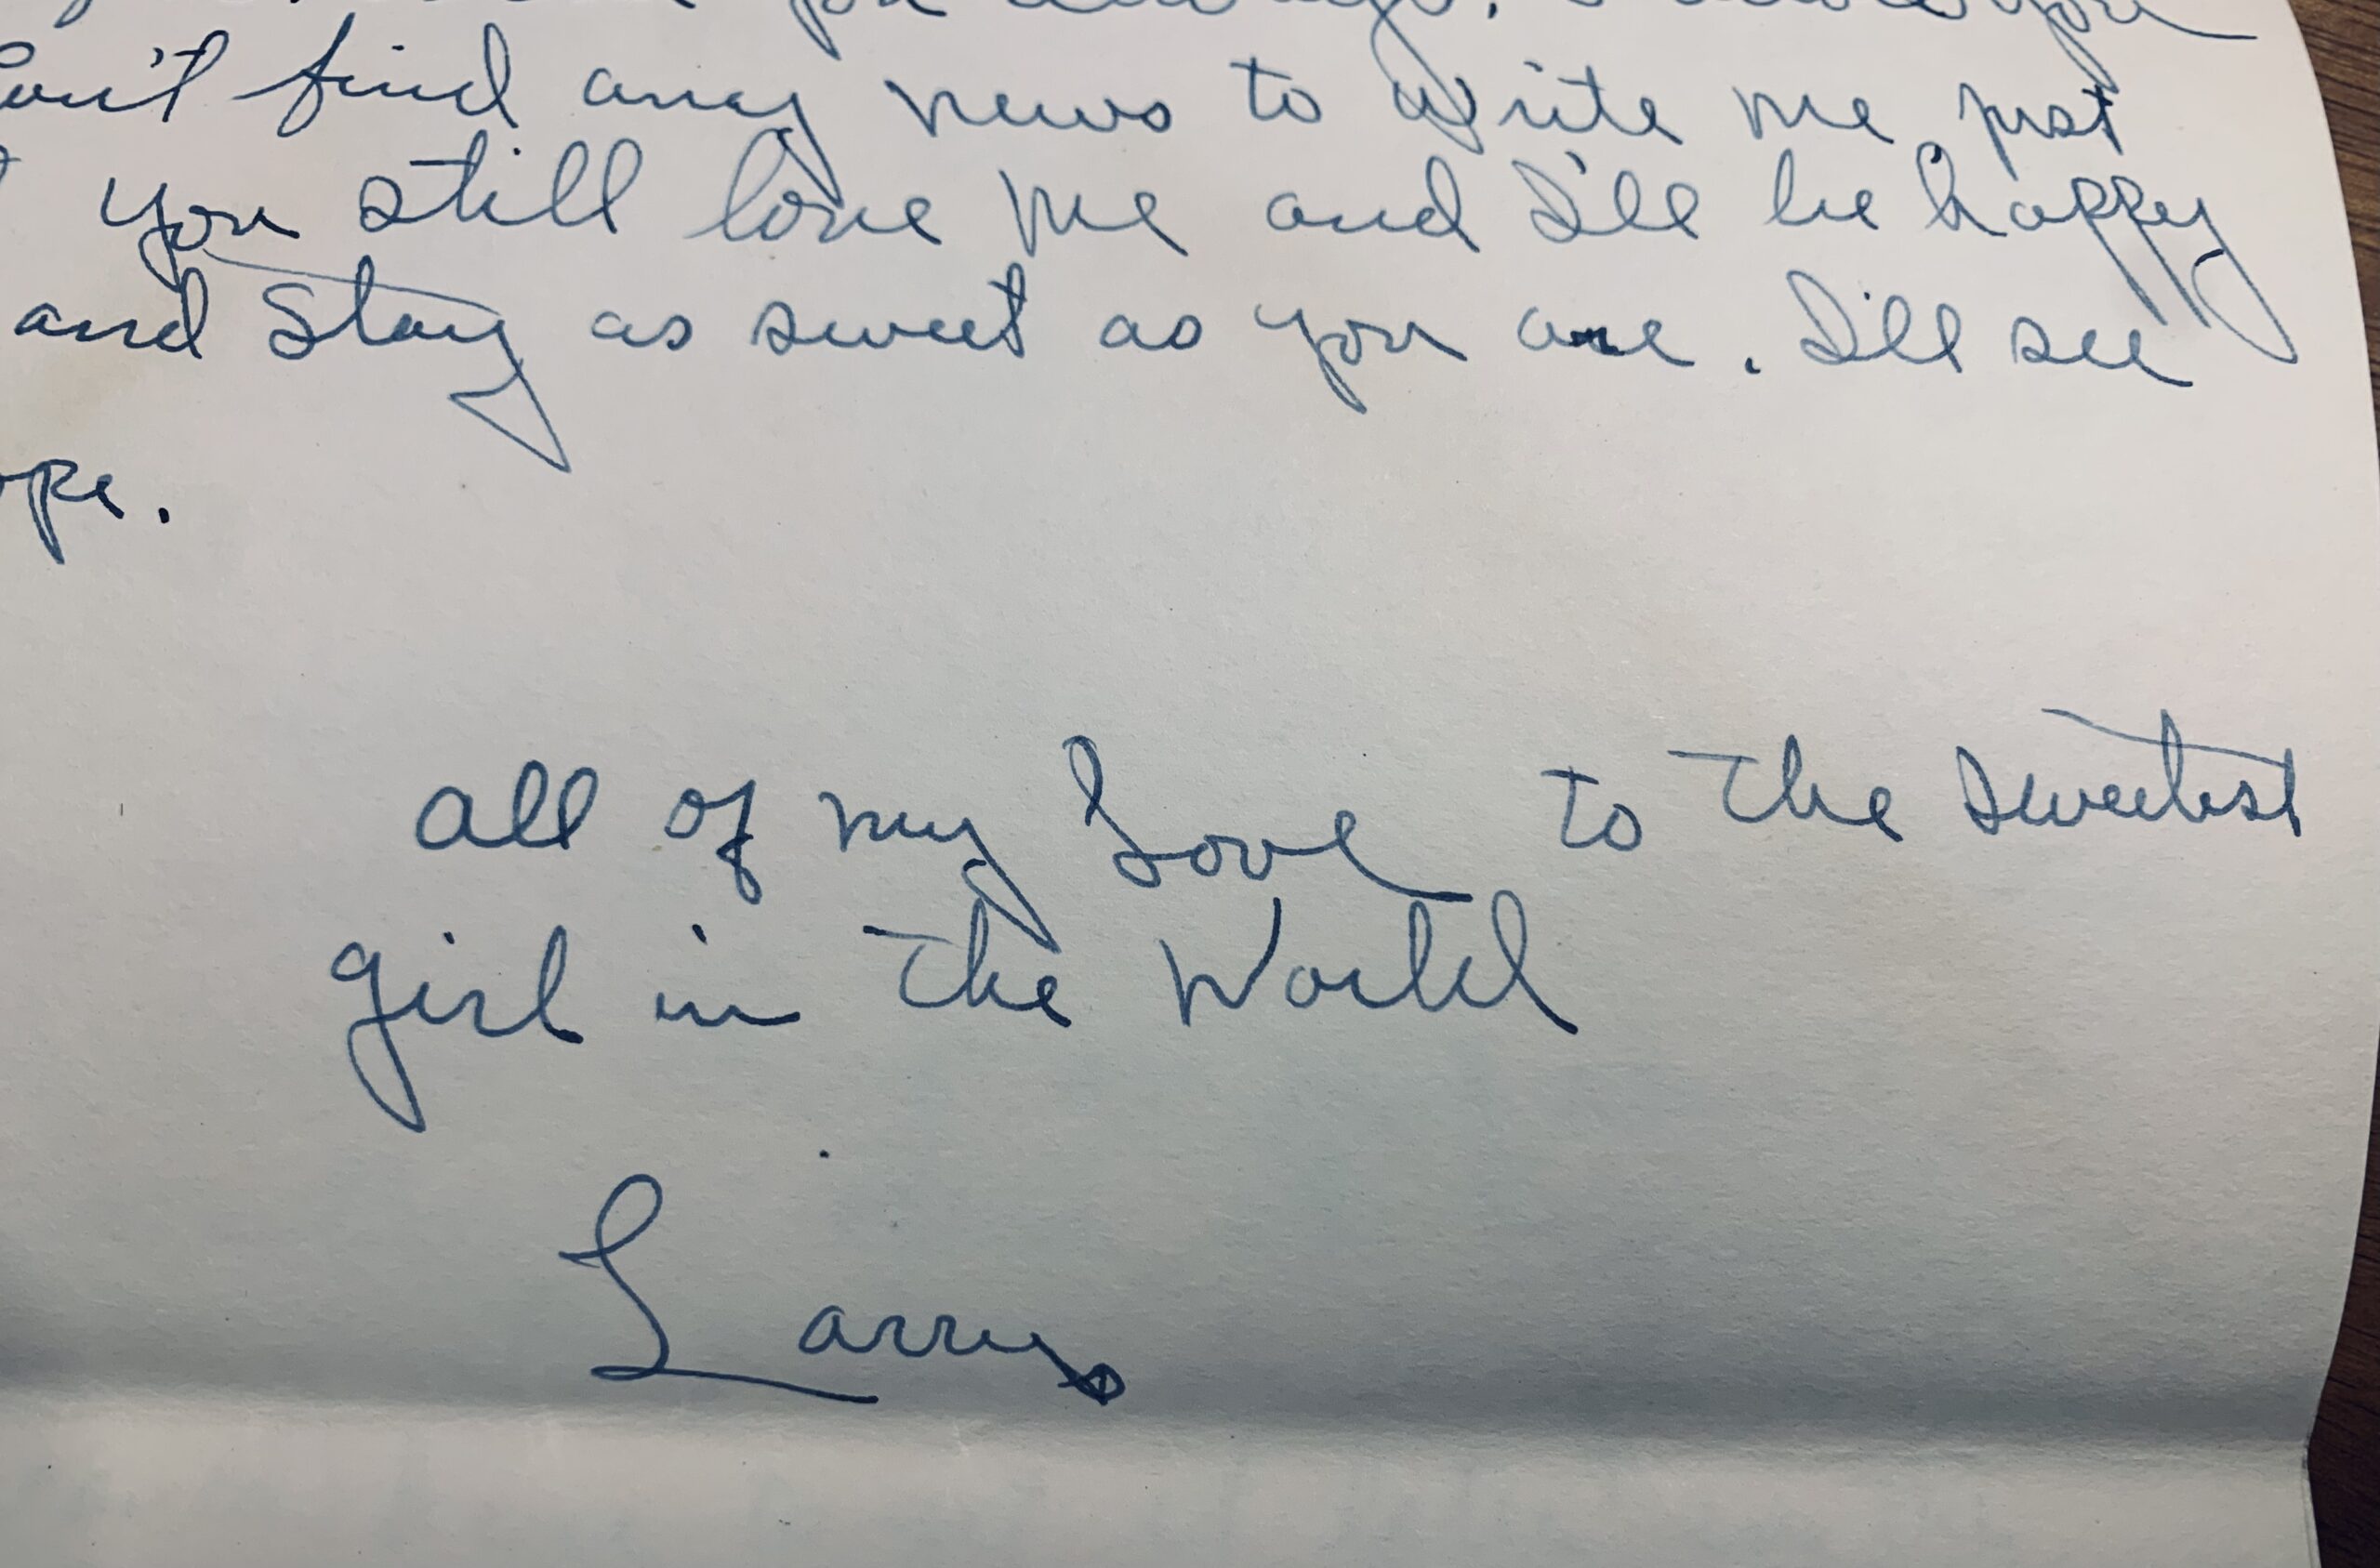 you always. I love you
find any news to write me just
you still love me and I'll be happy
and Stay as sweet as you are. I'll see
all of my Love to the sweetest
girl in the World
Larry